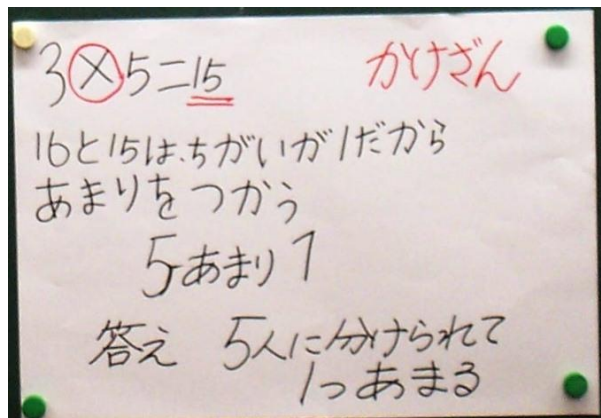 3×5=15
かけざん
16と15は、ちがいが1だから
あまりをつかう
5あまり1
答え 5人に分けられて
1つあまる